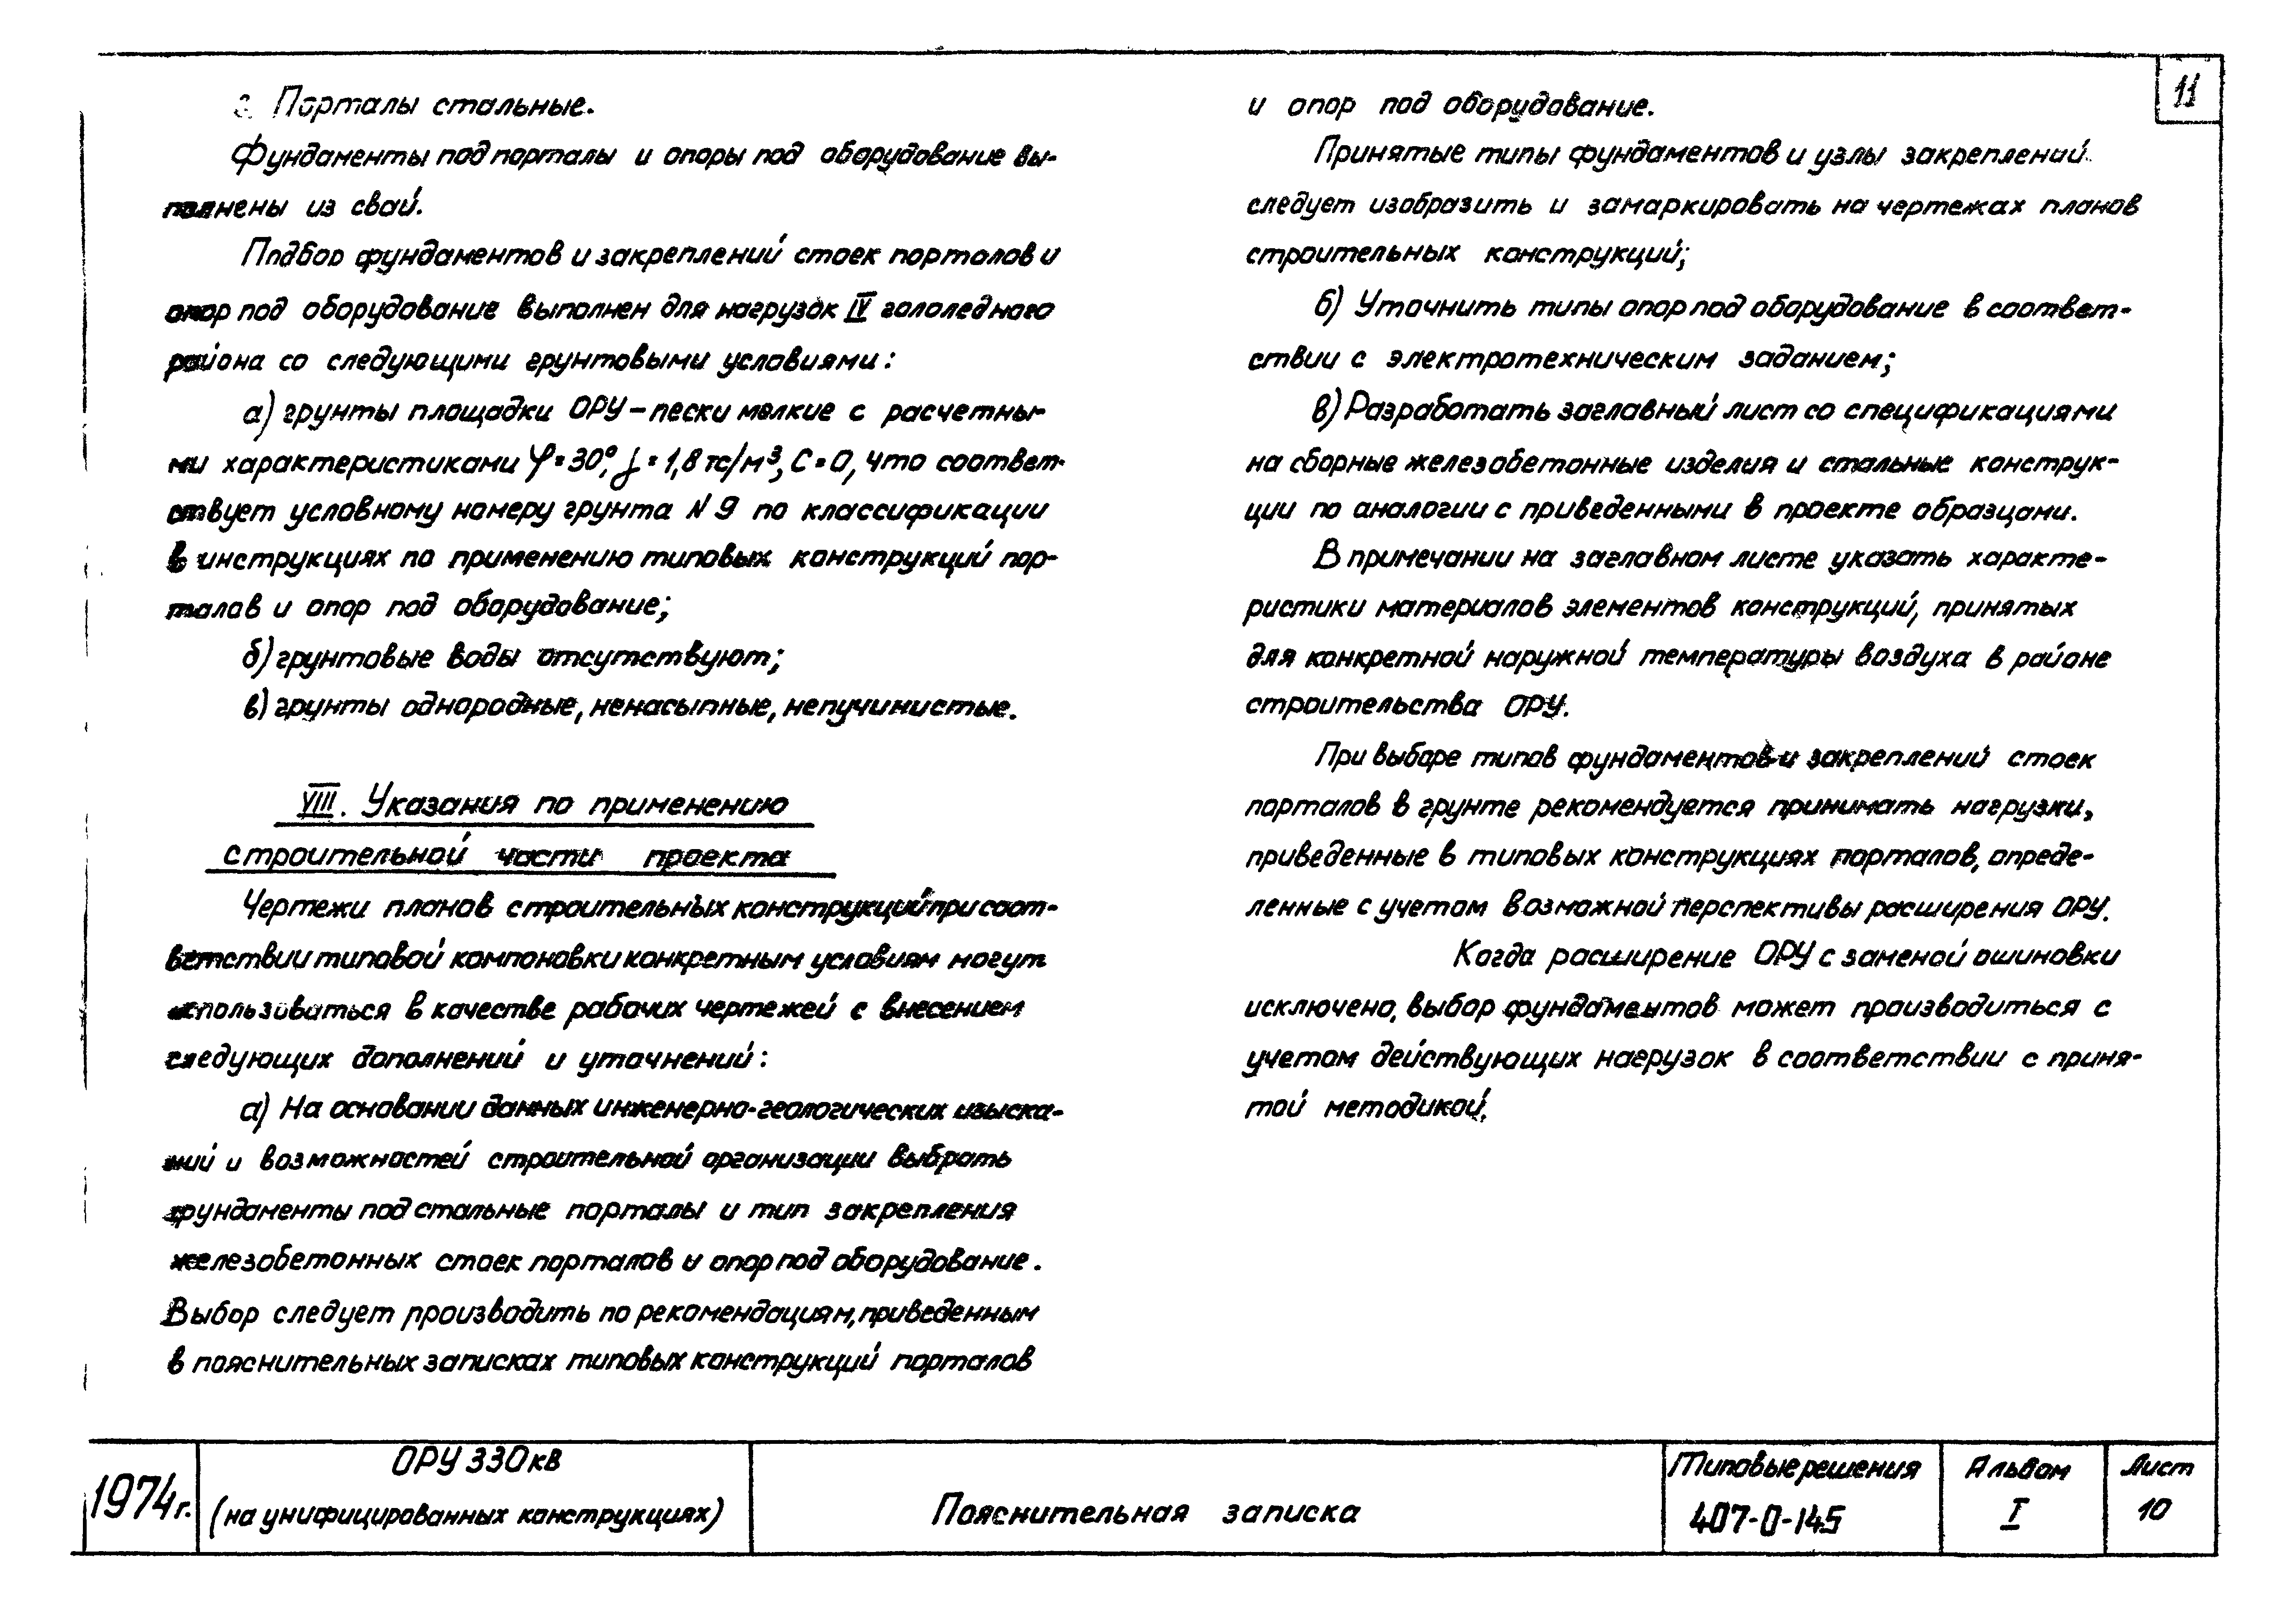 г. Порталы стальные.
Фундаменты под порталы и опоры под оборудование вы-
полнены из свай.
Подбор фундаментов и закреплений стоек порталов и
опор под оборудование выполнен для нагрузок IV гололедного
района со следующими грунтовыми условиями:
а) грунты площадки ОРУ – пески мелкие с расчетны-
ми характеристиками φ=30°, γ=1,8 тс/м³, С=0, что соответ-
ствует условному номеру грунта N 9 по классификации
в инструкциях по применению типовых конструкций пор-
талов и опор под оборудование;
б) грунтовые воды отсутствуют;
в) грунты однородные, ненасыпные, непучинистые.
VIII. Указания по применению
строительной части проекта
Чертежи планов строительных конструкций при соот-
ветствии типовой компоновки конкретным условиям могут
использоваться в качестве рабочих чертежей с внесением
следующих дополнений и уточнений:
а) На основании данных инженерно-геологических изыска-
ний и возможностей строительной организации выбрать
фундаменты под стальные порталы и тип закрепления
железобетонных стоек порталов и опор под оборудование.
Выбор следует производить по рекомендациям, приведенным
в пояснительных записках типовых конструкций порталов
11
и опор под оборудование.
Принятые типы фундаментов и узлы закреплений
следует изобразить и замаркировать на чертежах планов
строительных конструкций;
б) Уточнить типы опор под оборудование в соответ-
ствии с электротехническим заданием;
в) Разработать заглавный лист со спецификациями
на сборные железобетонные изделия и стальные конструк-
ции по аналогии с приведенными в проекте образцами.
В примечании на заглавном листе указать характе-
ристики материалов элементов конструкций, принятых
для конкретной наружной температуры воздуха в районе
строительства ОРУ.
При выборе типов фундаментов и закреплений стоек
порталов в грунте рекомендуется принимать нагрузки,
приведенные в типовых конструкциях порталов, опреде-
ленные с учетом возможной перспективы расширения ОРУ.
Когда расширение ОРУ с заменой ошиновки
исключено, выбор фундаментов может производиться с
учетом действующих нагрузок в соответствии с приня-
той методикой.
1974г.
ОРУ 330кв
(на унифицированных конструкциях)
Пояснительная записка
Типовые решения
407-0-145
Альбом
I
Лист
10